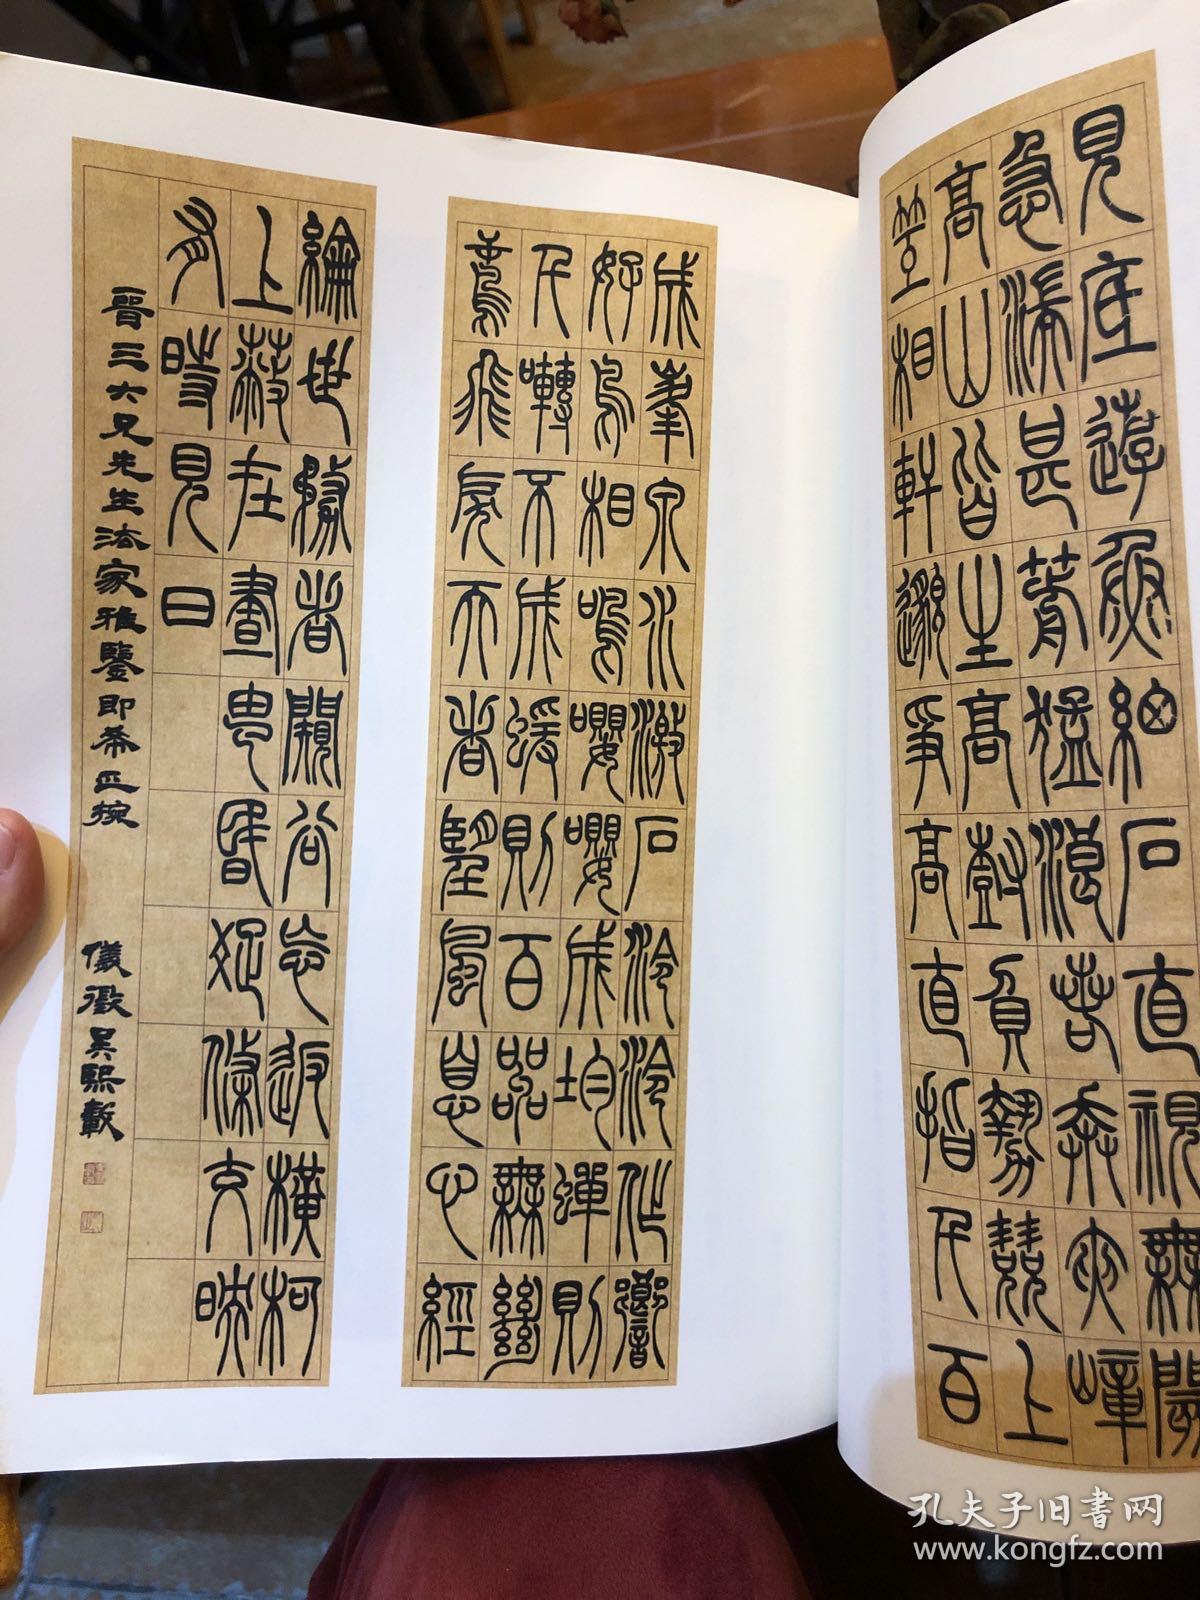 見底遊魚細石直視無閡
急湍甚箭猛浪若奔夾嶂
高山皆生高樹負勢競上
互相軒邈爭高直指千百
成峯泉水激石泠泠作響
好鳥相鳴嚶嚶成均蟬則
千囀不成蝯則百嘂無絕
鳶飛戾天者望風息心經
綸世務者闚谷忘返橫柯
上蔽在晝昏疏條交映
有時見日
晉三六兄先生法家雅鑒即希正捥
儀徵吳熙載
孔夫子旧书网
www.kongfz.com